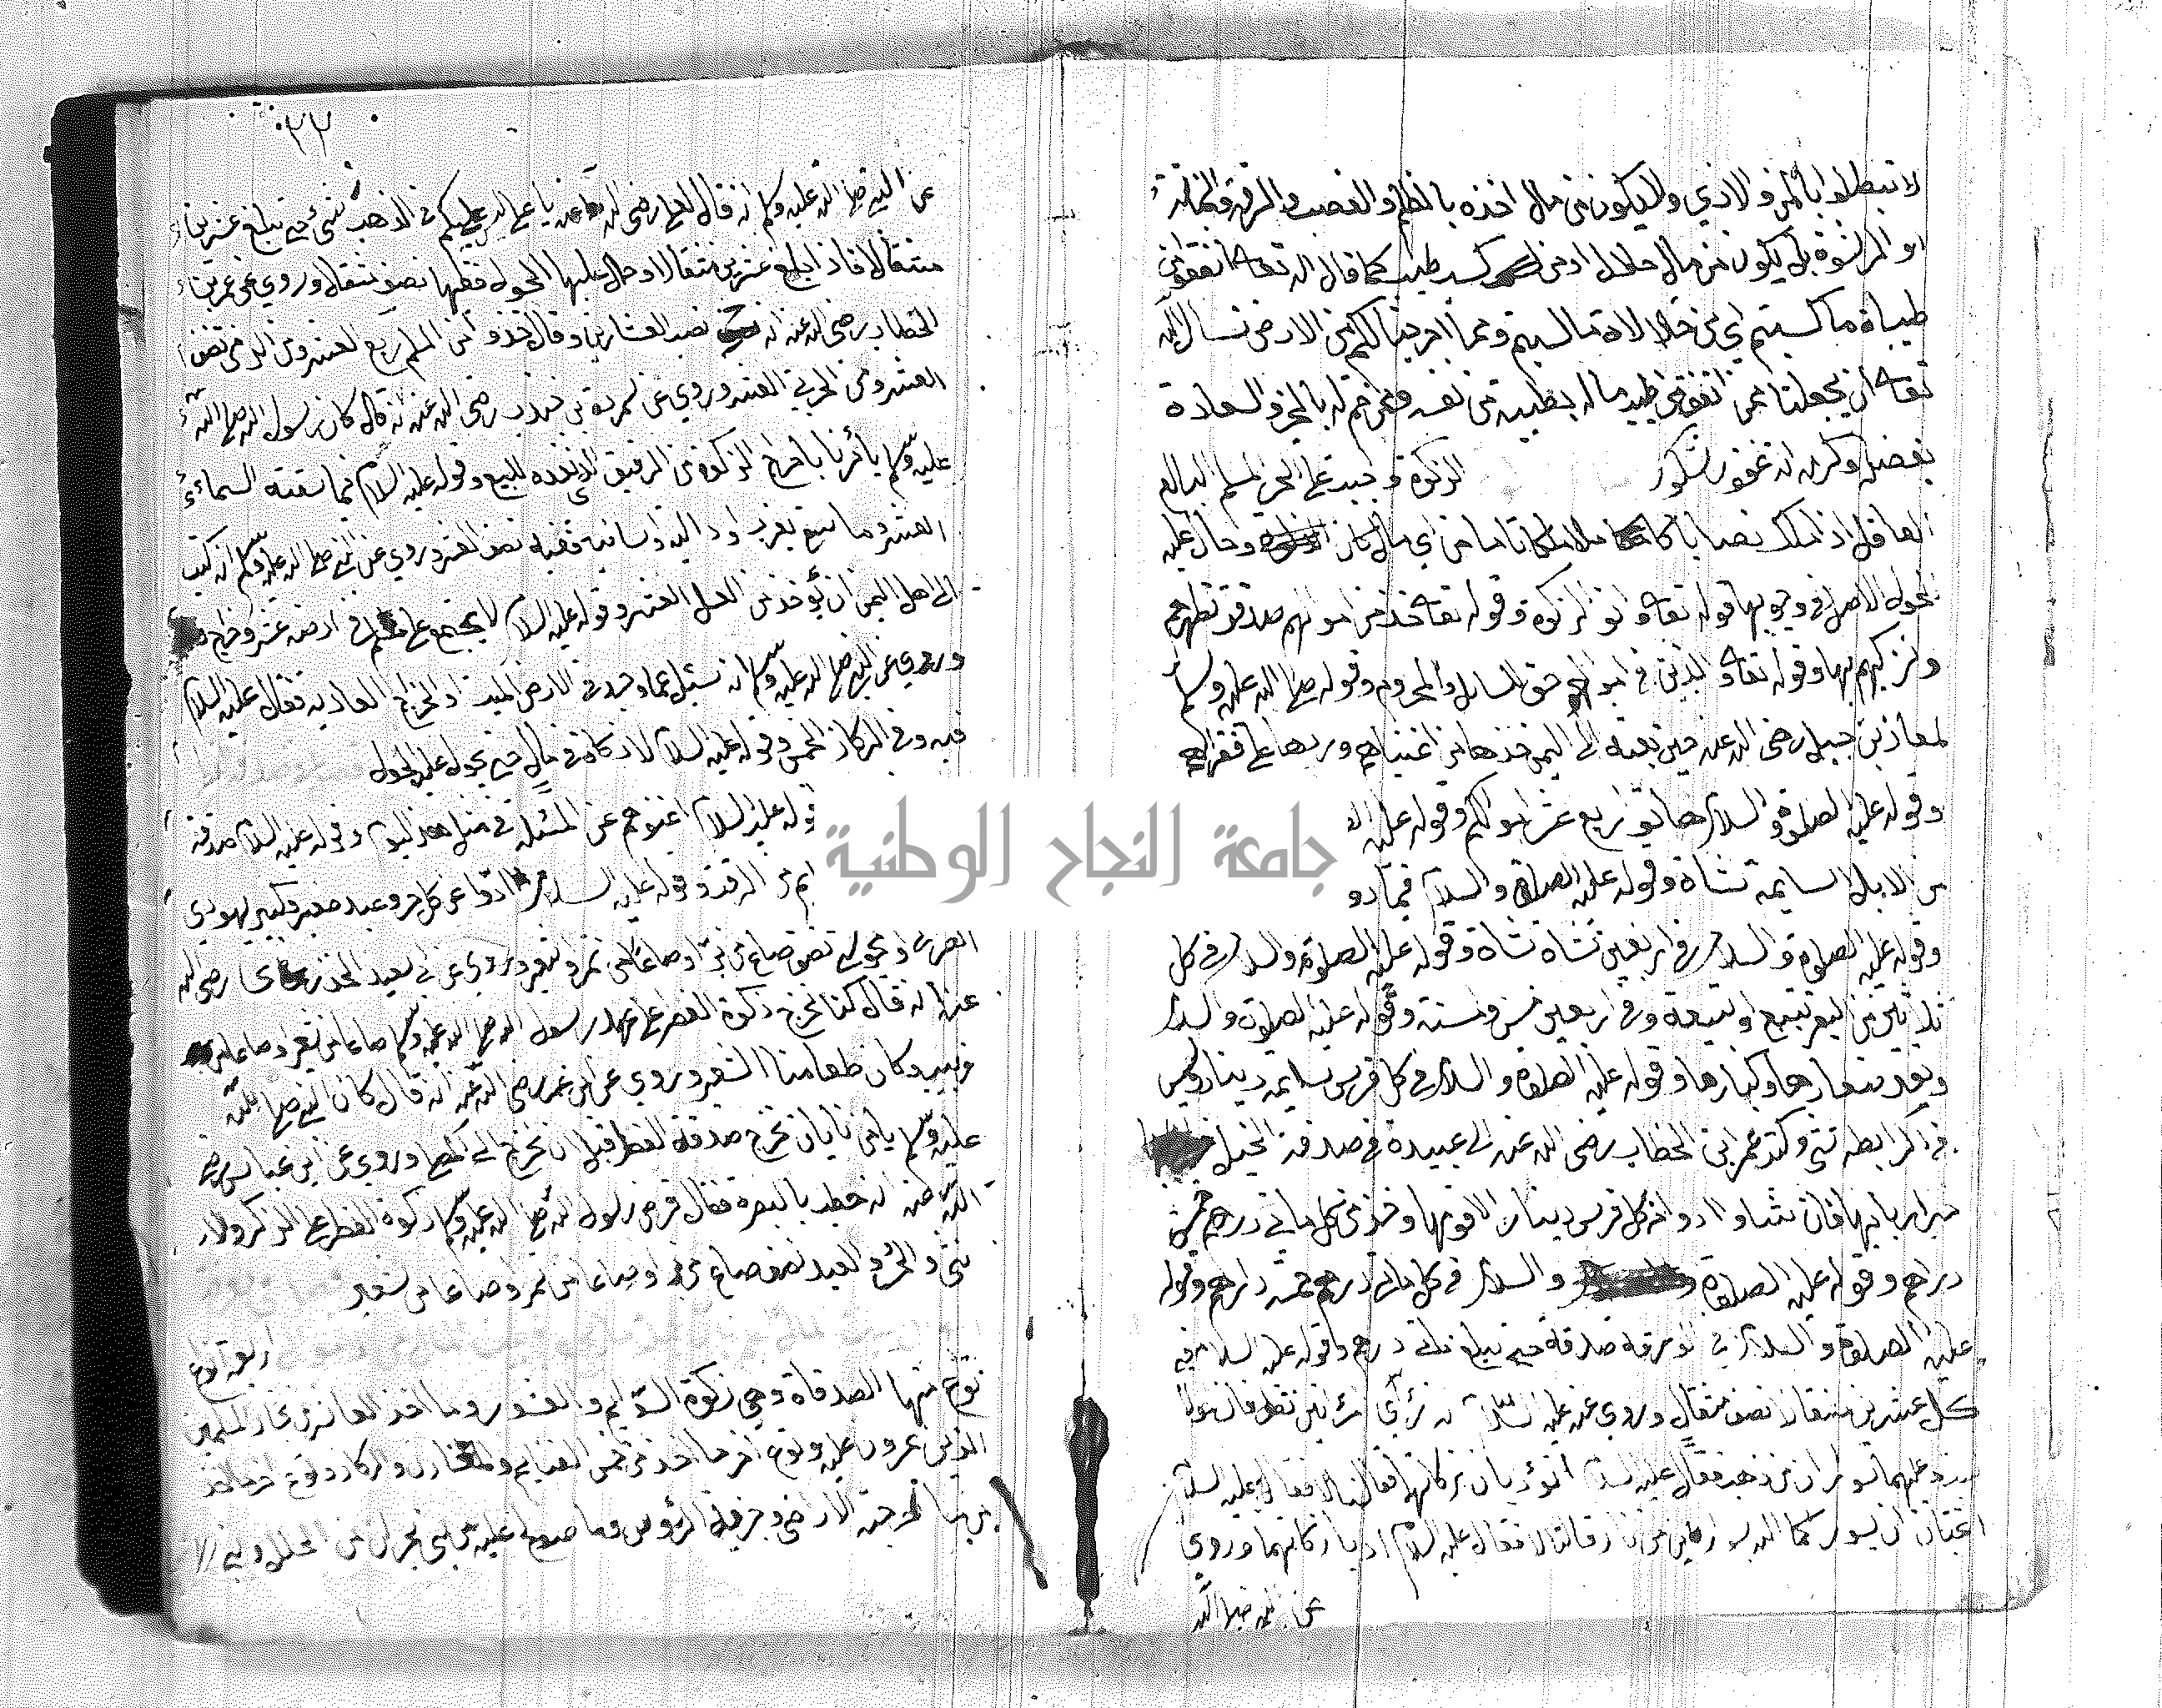 لا تبطلوا بالمن والاذي وليكون من مال اخذه بالظلم والغصب والسرقة والخيانة
او الرشوة بل يكون من مال حلال او من كسب طيب كما قال الله تعا انفقوا من
طيباة ما كسبتم اي من حلالاة ما كسبتم ومما اخرجنا لكم من الارض نسال الله
تعا ان يجعلنا ممن انفق من طيب ماله بطيبة من نفسه وممن ختم له بالخير والسعادة
بفضله وكرمه انه غفور شكور الزكوة واجبة على الحر المسلم البالغ
العاقل اذا ملك نصابا كاملا ملكا تاما من اي مال كان وحال عليه
الحول الاصل في وجوبها قوله تعا واتو الزكوة وقوله تعا خذ من اموالهم صدقة تطهرهم
وتزكيهم بها وقوله تعا والذين في اموالهم حق للسائل والمحروم وقوله صلى الله عليه وسلم
لمعاذ بن جبل رضى الله عنه حين بعثه الى اليمن خذها من اغنياهم وردها على فقرائهم
وقوله عليه الصلوة والسلام هاتو ربع عشر اموالكم وقوله عليه
من الابل السايمة شاة وقوله عليه الصلاة والسلام فيما دو
وقوله عليه الصلوة والسلام في اربعين شاة شاة وقوله عليه الصلوة والسلام في كل
ثلاثين من البقر تبيع او تبيعة وفي اربعين مسن ومسنة وقوله عليه الصلوة والسلام
ويعد صغارها وكبارها وقوله عليه الصلوة والسلام في كل فرس سايمة دينار وليس
في الرابطة شئ وكتب عمر ابن الخطاب رضى الله عنه الى عبيدة في صدقة الخيل
خير اربابها فان شاوا ادوا من كل فرس دينارا والا قومها وخذ من كل مائتي درهم خمسة
دراهم وقوله عليه الصلوة والسلام في كل مائتي درهم خمسة دراهم وقوله
عليه الصلوة والسلام ليس في الرقة صدقة حتى تبلغ مائتي درهم وقوله عليه السلام في
كل عشرين مثقالا نصف مثقال وروي عنه عليه السلام انه رأي امرأتين تطوفان
وعليهما سواران من ذهب فقال عليه السلام اتؤديان زكاتهما فقالتا لا فقال عليه السلام
اتحبان ان يسوركما الله بسوارين من نار قالتا لا فقال عليه السلام اديا زكاتهما وروي
عن صلى الله
٣٣
عن النبي صلى الله عليه وسلم انه قال لعلي رضى الله عنه يا علي ليس عليكم في الذهب شئ حتى تبلغ عشرين
مثقالا فاذا بلغ عشرين مثقالا وحال عليها الحول ففيها نصف مثقال وروي عن عمر بن
الخطاب رضى الله عنه انه نصب العشارين وقال خذوا من المسلم ربع العشر ومن الذمي نصف
العشر ومن الحربي العشر وروي عن سمرة بن جندب رضى الله عنه انه قال كان رسول الله صلى الله
عليه وسلم يأمرنا باخراج الزكوة من الرقيق الذي نعده للبيع وقوله عليه السلام فيما سقته السماء
العشر وما سقى بغرب او دالية او سانية ففيه نصف العشر وروي عن النبي صلى الله عليه وسلم انه كتب
الى اهل اليمن ان يؤخذ من العسل العشر وقوله عليه السلام لا يجتمع على مسلم في ارضه عشر وخراج
وروي عن النبي صلى الله عليه وسلم انه سئل عما وجد في الارض الميتة او الخراب العادية فقال عليه السلام
فيه وفي الركاز الخمس وقوله عليه السلام لا زكاة في مال حتى يحول عليه الحول
قوله عليه السلام اغنوهم عن المسئلة في مثل هذا اليوم وقوله عليه السلام صدقة
وقوله عليه السلام ادوا عن كل حر وعبد صغير وكبير يهودي
او نصف صاع من بر او صاعا من تمر او شعير وروي عن ابي سعيد الخذري رضى الله
عنه انه قال كنا نخرج زكوة الفطر على عهد رسول الله صلى الله عليه وسلم صاعا من شعير او صاعا من
زبيب وكان طعامنا الشعير وروي عن ابن عمر رضى الله عنه انه قال كان النبي صلى الله
عليه وسلم يامرنا بان نخرج صدقة الفطر قبل ان نخرج الى المصلى وروي عن ابن عباس رضى
الله عنه انه خطب بالبصرة فقال فرض رسول الله صلى الله عليه وسلم زكوة الفطر على الذكر والا
نثى والحر والعبد نصف صاع من بر او صاعا من تمر او صاعا من شعير
اربعة انواع
نوع منها الصدقاة وهي زكوة السوايم والعشور وما اخذ العاشر من تجار المسلمين
الذين يمرون عليه ونوع اخر ما اخذ من خمس الغنايم والمعادن والركاز ونوع اخر ما اخذ
من خراج الاراضي وجزية الرؤس وما صولح عليه من بني نجران من الحلل وبني
جامعة النجاح الوطنية